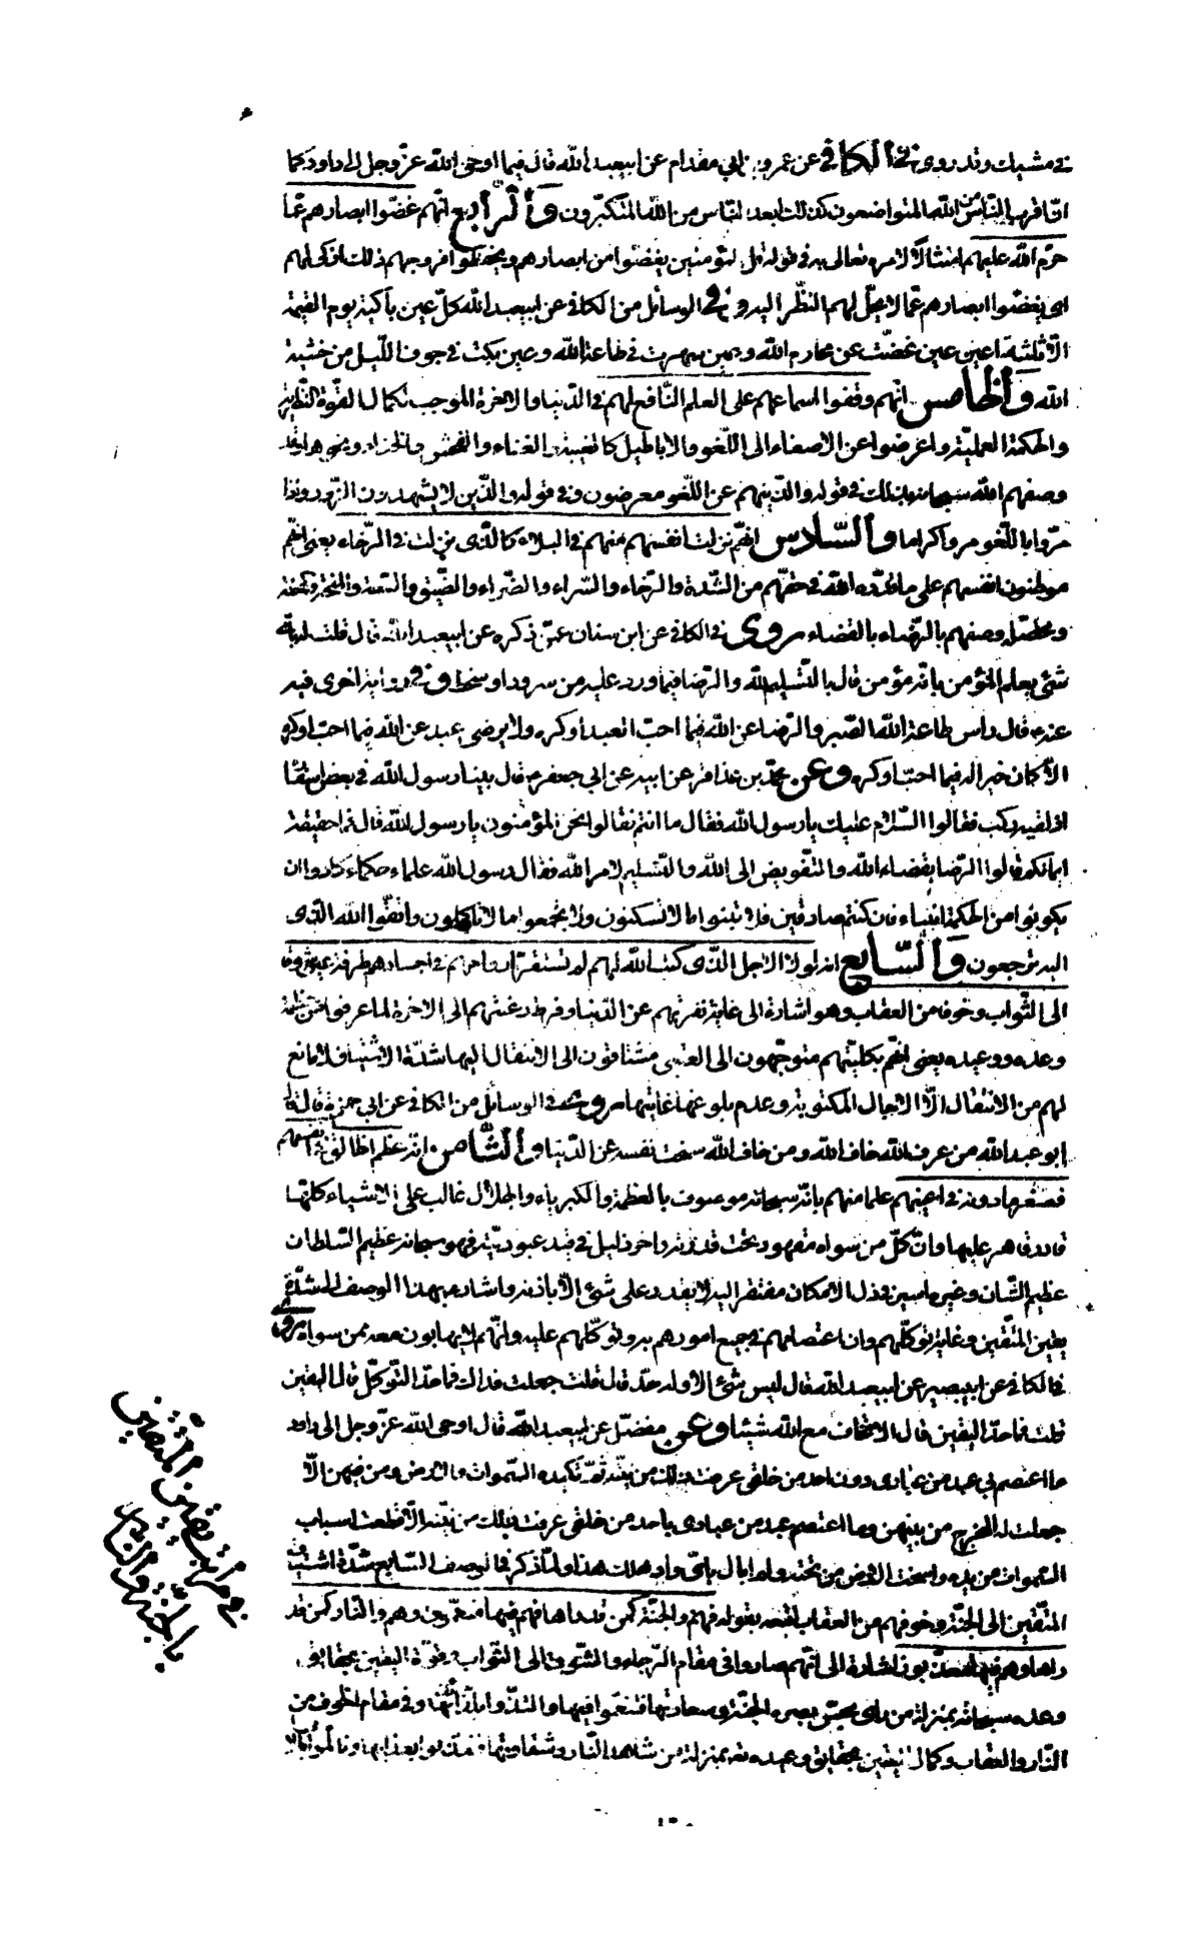 في مشيك وقد روى في الكافي عن عمرو بن ابي مقدام عن ابيعبد الله قال فيما اوحى الله عزّ وجل الى داود كما
انّ اقرب النّاس من الله المتواضعون كذلك ابعد النّاس من الله المتكبّرون والرّابع انّهم غضّوا ابصارهم عمّا
حرّم الله عليهم امتثالًا لامره تعالى به في قوله قل للمؤمنين يغضّوا من ابصارهم ويحفظوا فروجهم ذلك ازكى لهم
اى يغضّوا ابصارهم عمّا لا يحلّ لهم النّظر اليه وفي الوسائل من الكافي عن ابيعبد الله كلّ عين باكية يوم القيمة
الّا ثلثة اعين عين غضّت عن محارم الله وعين سهرت في طاعة الله وعين بكت في جوف اللّيل من خشية
الله والخامس انّهم وقفوا اسماعهم على العلم النّافع لهم في الدّنيا والاخرة الموجب لكمال القوّة النّظريّة
والحكمة العمليّة واعرضوا عن الاصغاء الى اللّغو والاباطيل كالغيبة والغناء والفحش والخناء ونحوها وقد
وصفهم الله سبحانه بذلك في قوله والّذينهم عن اللّغو معرضون وفي قوله والّذين لا يشهدون الزّور واذا
مرّوا باللّغو مرّوا كراما والسّادس انّهم نزلت انفسهم منهم في البلاء كالّذى نزلت في الرّخاء يعني انّهم
موطّنون انفسهم على ما قدّره الله في حقّهم من الشّدة والرّخاء والسّراء والضّراء والضّيق والسّعة والمنحة والمحنة
ومحصّله وصفهم بالرّضاء بالقضاء روى في الكافي عن ابن سنان عمّن ذكره عن ابيعبد الله قال قلت له باىّ
شئ يعلم المؤمن بانّه مؤمن قال بالتّسليم لله والرّضا فيما ورد عليه من سرور او سخط وفي رواية اخرى فيه
عنه قال رأس طاعة الله الصّبر والرّضا عن الله فيما احبّ العبد أو كره ولا يرضى عبد عن الله فيما احبّ او كره
الّا كان خيرا له فيما احبّ او كره وعن محمّد بن عذافر عن ابيه عن ابي جعفر قال بينا رسول الله في بعض اسفاره
اذ لقيه ركب فقالوا السّلام عليك يا رسول الله فقال ما انتم فقالوا نحن المؤمنون يا رسول الله قال فما حقيقة
ايمانكم قالوا الرّضا بقضاء الله والتّفويض الى الله والتّسليم لامر الله فقال رسول الله علماء حكماء كادوا ان
يكونوا من الحكمة انبياء فان كنتم صادقين فلا تبنوا ما لا تسكنون ولا تجمعوا ما لا تأكلون واتّقوا الله الّذى
اليه ترجعون والسّابع انه لولا الاجل الّذى كتب الله لهم لم تستقرّ ارواحهم في اجسادهم طرفة عين شوقا
الى الثّواب وخوفا من العقاب وهو اشارة الى غاية نفرتهم عن الدّنيا وفرط رغبتهم الى الاخرة لما عرفوا من عظمة
وعده ووعيده يعني انّهم بكليّتهم متوجّهون الى العقبى مشتاقون الى الانتقال اليها شدّة الاشتياق لا مانع
لهم من الانتقال الّا الاجال المكتوبة وعدم بلوغها غايتها روى في الوسائل من الكافي عن ابي حمزة قال قال
ابو عبد الله من عرف الله خاف الله ومن خاف الله سخت نفسه عن الدّنيا والثّامن انّه عظم الخالق في انفسهم
فصغر ما دونه في اعينهم علما منهم بانّه سبحانه موصوف بالعظمة والكبرياء والجلال غالب على الاشياء كلّها
قادر قاهر عليها وانّ كلّ من سواه مقهور تحت قدرته داخر ذليل في قيد عبوديّته فهو سبحانه عظيم السّلطان
عظيم الشّان وغيره اسير في ذل الامكان مفتقر اليه لا يقدر على شئ الّا باذنه واشار بهذا الوصف الى شدّة
يقين المتّقين وغاية توكّلهم وان اعتصامهم في جميع امورهم به وتوكّلهم عليه وانّهم لا يهابون معه ممن سواه روى
في الكافي عن ابيبصير عن ابيعبد الله قال ليس شئ الّا وله حدّ قال قلت جعلت فداك فما حدّ التّوكّل قال اليقين
قلت فما حدّ اليقين قال الّا تخاف مع الله شيئا وعن مفضّل عن ابيعبد الله قال اوحى الله عزّ وجل الى داود
ما اعتصم بي عبد من عبادى دون احد من خلقى عرفت ذلك من نيّته ثمّ تكيده السّموات والارض ومن فيهن الّا
جعلت له المخرج من بينهن وما اعتصم عبد من عبادى باحد من خلقى عرفت ذلك من نيّته الّا قطعت اسباب
السّموات من يديه واسخت الارض من تحته ولم ابال باىّ واد هلك هذا ولمّا ذكر في الوصف السّابع شدّة اشتياق
المتّقين الى الجنّة وخوفهم من العقاب اتبعه بقوله فهم والجنّة كمن قد راها فهم فيها منعّمون وهم والنّار كمن قد
راها وهم فيها معذّبون اشارة الى انّهم صاروا في مقام الرّجاء والشّوق الى الثّواب وقوّة اليقين بحقايق
وعده سبحانه بمنزلة من راى بحسّ بصره الجنّة وسعادتها فتنعّموا فيها والتذّوا بلذائذها وفي مقام الخوف من
النّار والعقاب وكمال اليقين بحقايق وعيده تعالى بمنزلة من شاهد النّار وشقاوتها فتعذّبوا بعذابها وتألّموا بآلامها
في مراتب يقين المتّقين
بالجنّة والنار